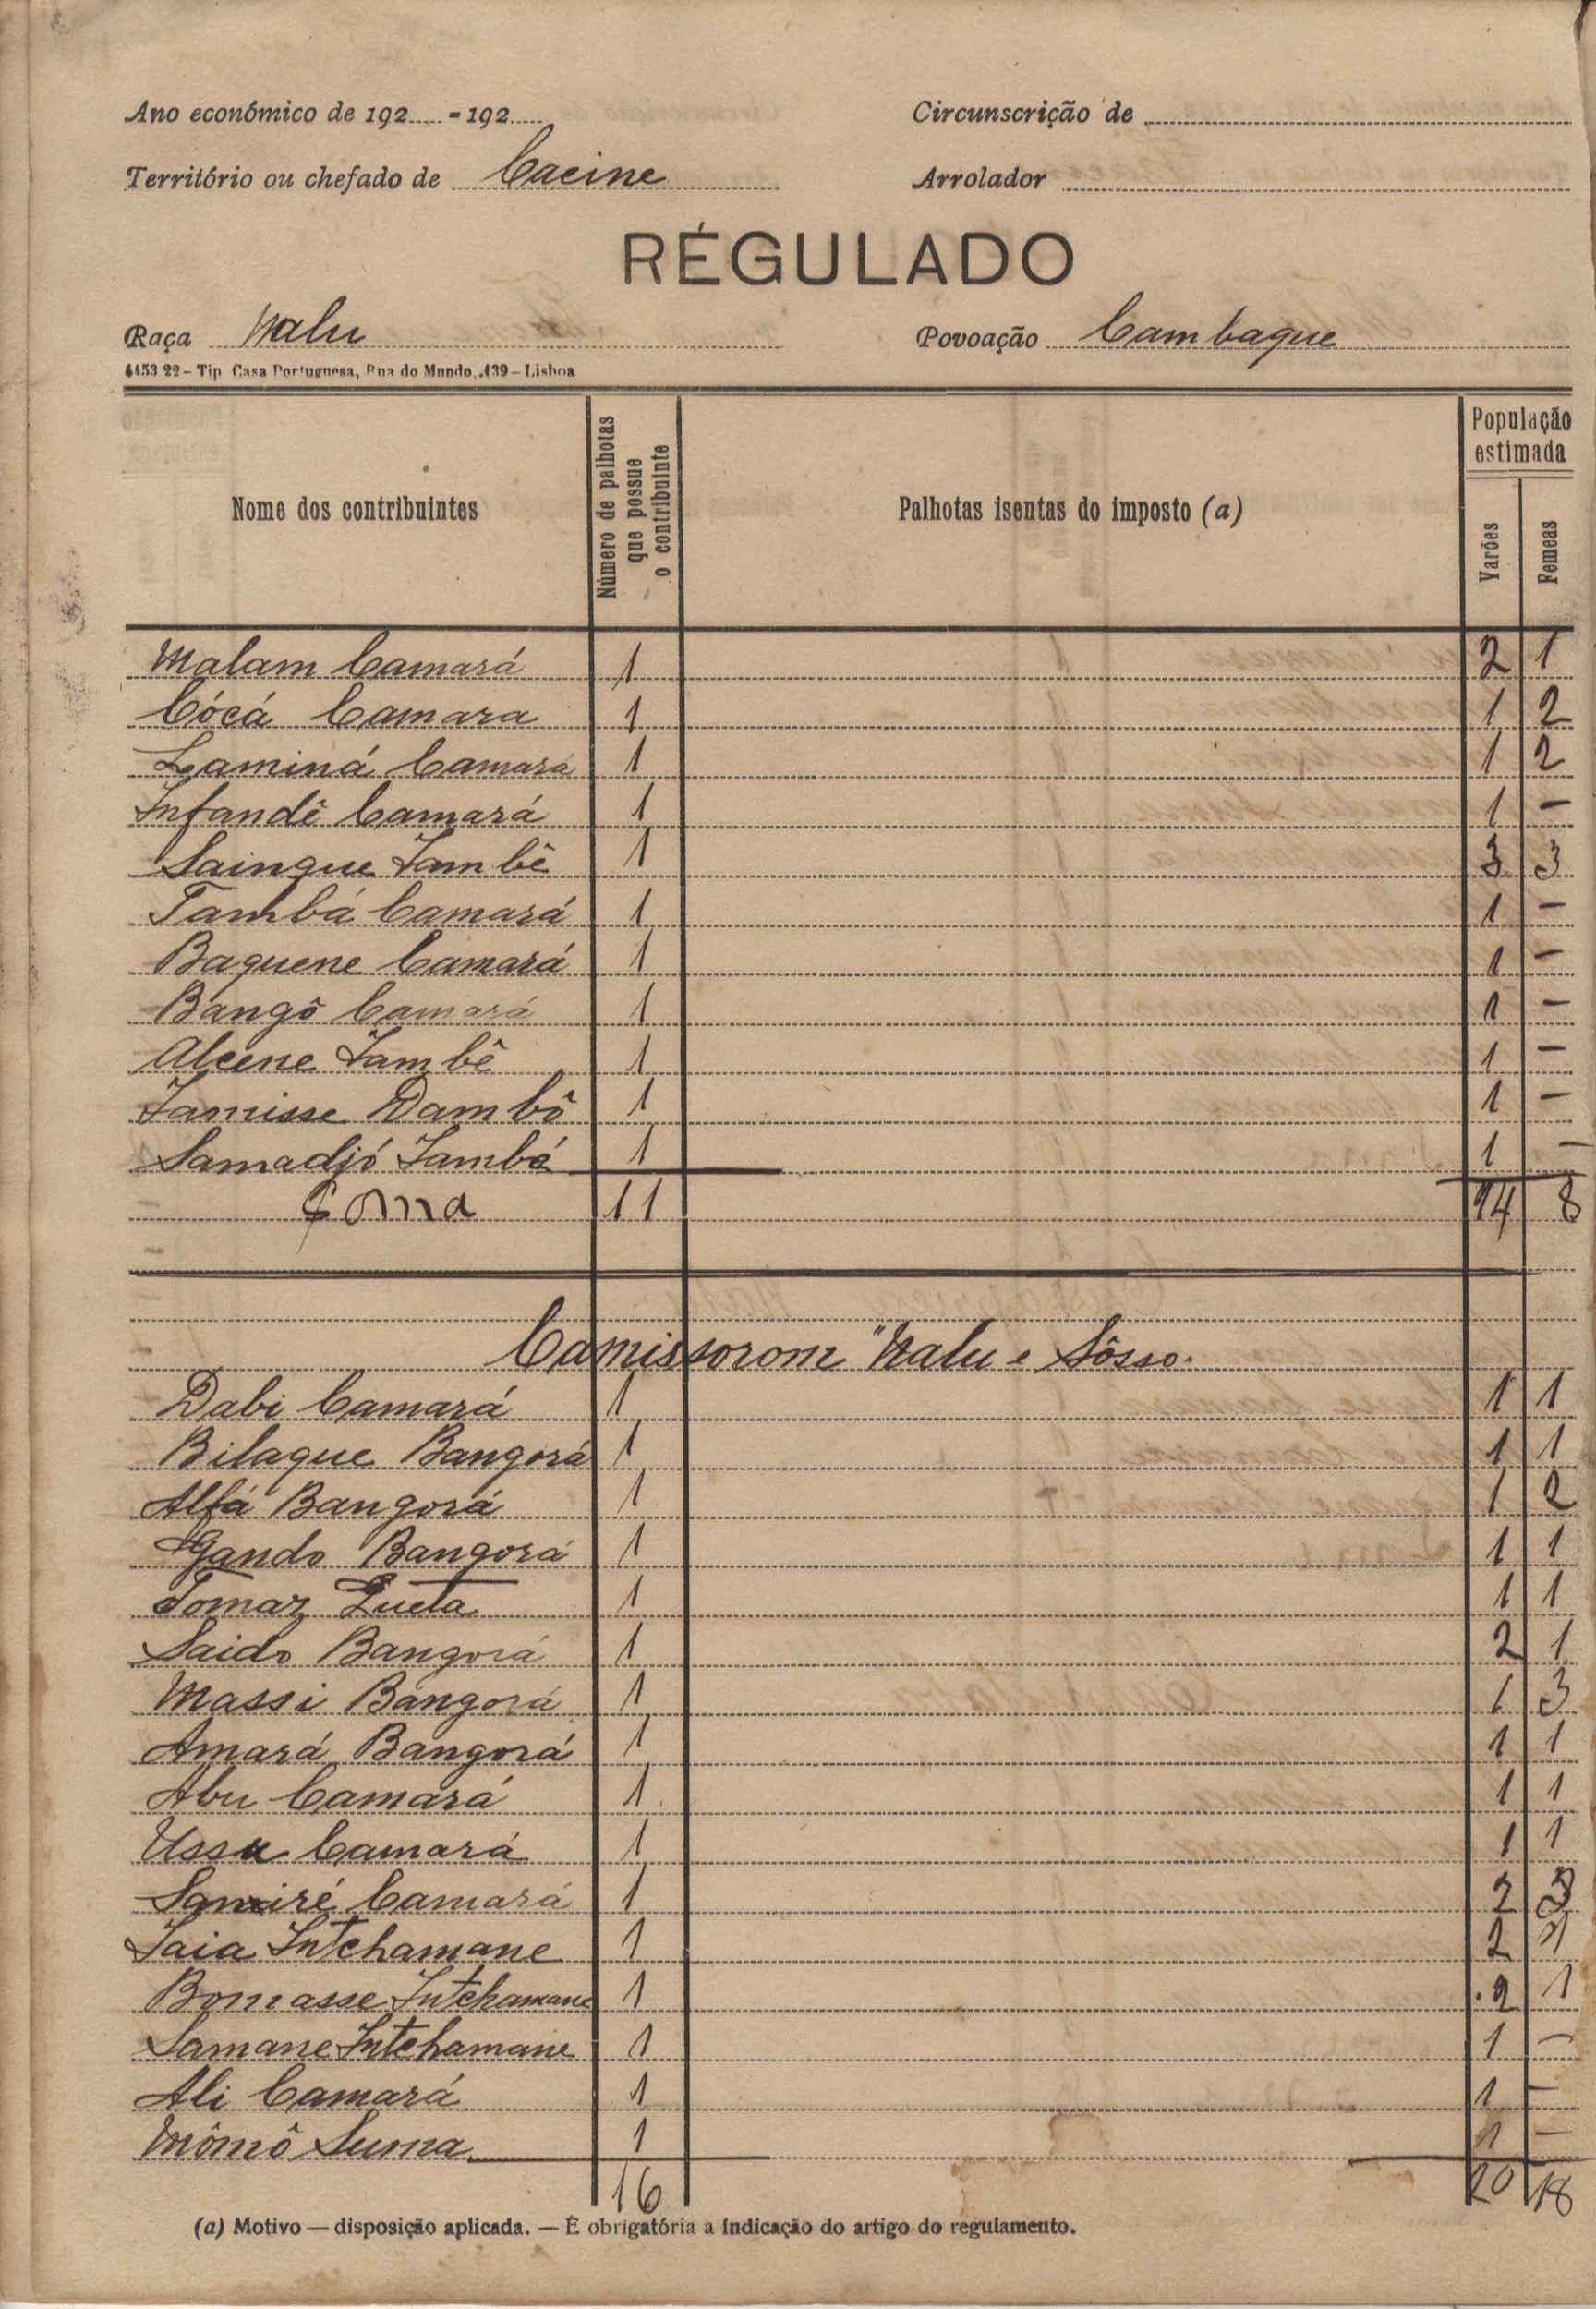 Ano económico de 192..... - 192..... Circunscrição de
Território ou chefado de Cacine Arrolador
RÉGULADO
Raça Nalu Povoação Cambaque
4453 22 - Tip Casa Portuguesa, Rua do Mundo, 139 - Lisboa
Nome dos contribuintes Número de palhotas que possue o contribuinte Palhotas isentas do imposto (a) População estimada Varões Femeas
Malam Camará 1 2 1
Cócá Camara 1 1 2
Laminá Camará 1 1 2
Infandê Camará 1 1 -
Saingue Tambê 1 3 3
Tambá Camará 1 1 -
Baquene Camará 1 1 -
Bangô Camará 1 1 -
Alcene Tambê 1 1 -
Tamisse Dambô 1 1 -
Samadjó Tambá 1 1 -
Çoma 11 14 8
Camissorom "Nalu e Sôsso.
Dabi Camará 1 1 1
Bilaque Bangorá 1 1 1
Alfá Bangorá 1 1 2
Gando Bangorá 1 1 1
Tomaz 1 1 1
Saido Bangorá 1 2 1
Massi Bangorá 1 1 3
Amará Bangorá 1 1 1
Abu Camará 1 1 1
Ussu Camará 1 1 1
Camará 1 2 3
Iaia Intchamane 1 2 1
Bomasse Intchamane 1 2 1
Samane Intchamane 1 1 -
Ali Camará 1 1 -
Mômô Suma 1 1 -
16 20 18
(a) Motivo — disposição aplicada. — É obrigatória a indicação do artigo do regulamento.